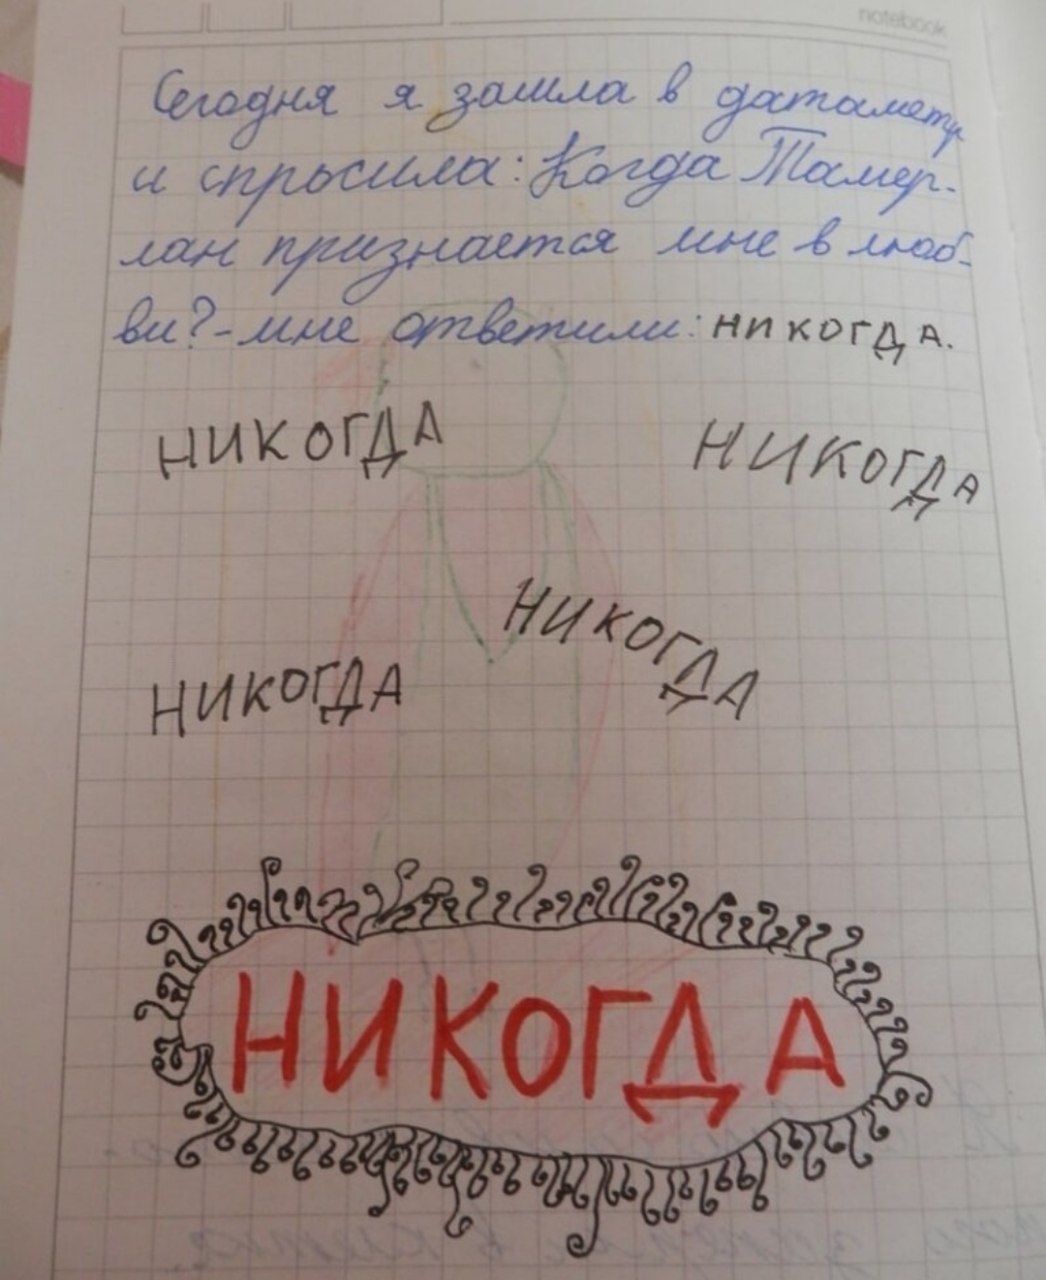 notebook
Сегодня я зашла в датаметр
и спросила: Когда Тамер-
лан признается мне в люб-
ви?-мне ответили: НИКОГДА.
НИКОГДА
НИКОГДА
НИКОГДА
НИКОГДА
НИКОГДА